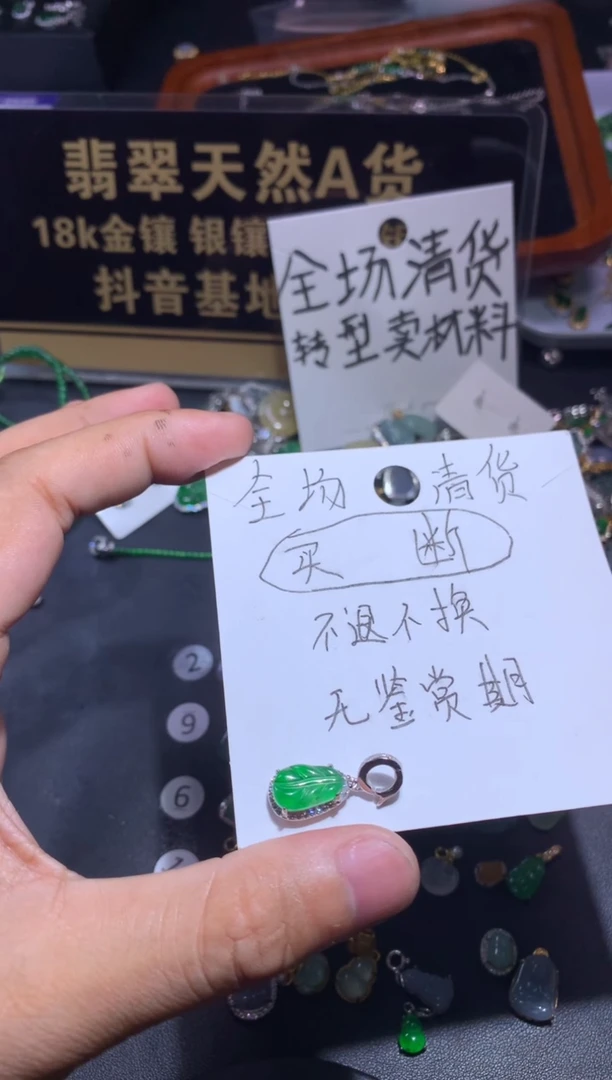 翡翠天然A货
18k金镶 银镶
抖音基地
全场清货
转型卖材料
全场 清货
买断
不退不换
无鉴赏期
2
9
6